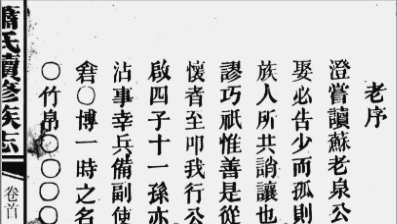 老序
澄嘗讀蘇老泉公
娶必告少而孤則
族人所共誚讓也
謬巧祇惟善是從
懷者至叩我行公
啟四子十一孫亦
沾事幸兵備副使
窘〇博一時之名
〇竹帛〇〇〇〇
蕭氏續修族志
卷首